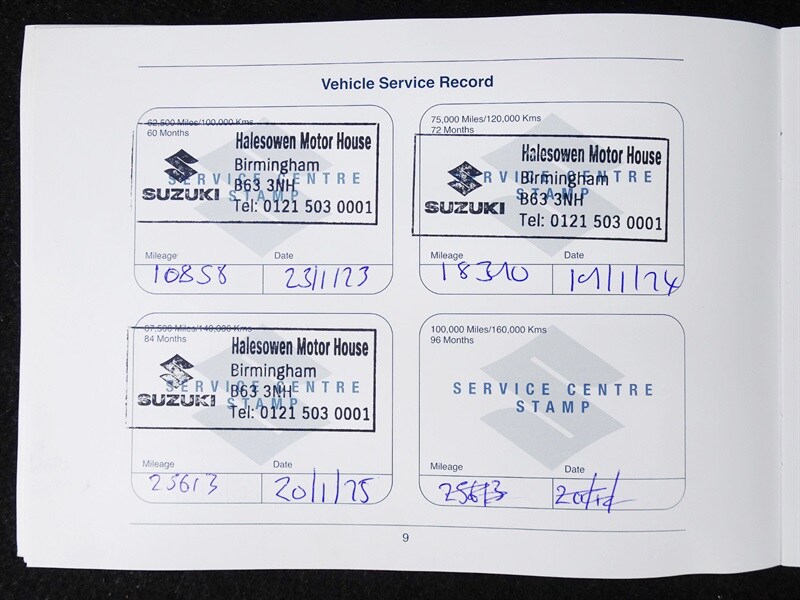 Vehicle Service Record
62,500 Miles/100,000 Kms
60 Months
Halesowen Motor House
Birmingham
B63 3NH
Tel: 0121 503 0001
SUZUKI
SERVICE CENTRE
STAMP
Mileage
Date
10858
23/1/23
75,000 Miles/120,000 Kms
72 Months
Halesowen Motor House
Birmingham
B63 3NH
Tel: 0121 503 0001
SUZUKI
SERVICE CENTRE
STAMP
Mileage
Date
18310
19/1/24
87,500 Miles/140,000 Kms
84 Months
Halesowen Motor House
Birmingham
B63 3NH
Tel: 0121 503 0001
SUZUKI
SERVICE CENTRE
STAMP
Mileage
Date
25613
20/1/25
100,000 Miles/160,000 Kms
96 Months
SERVICE CENTRE
STAMP
Mileage
Date
25613
9